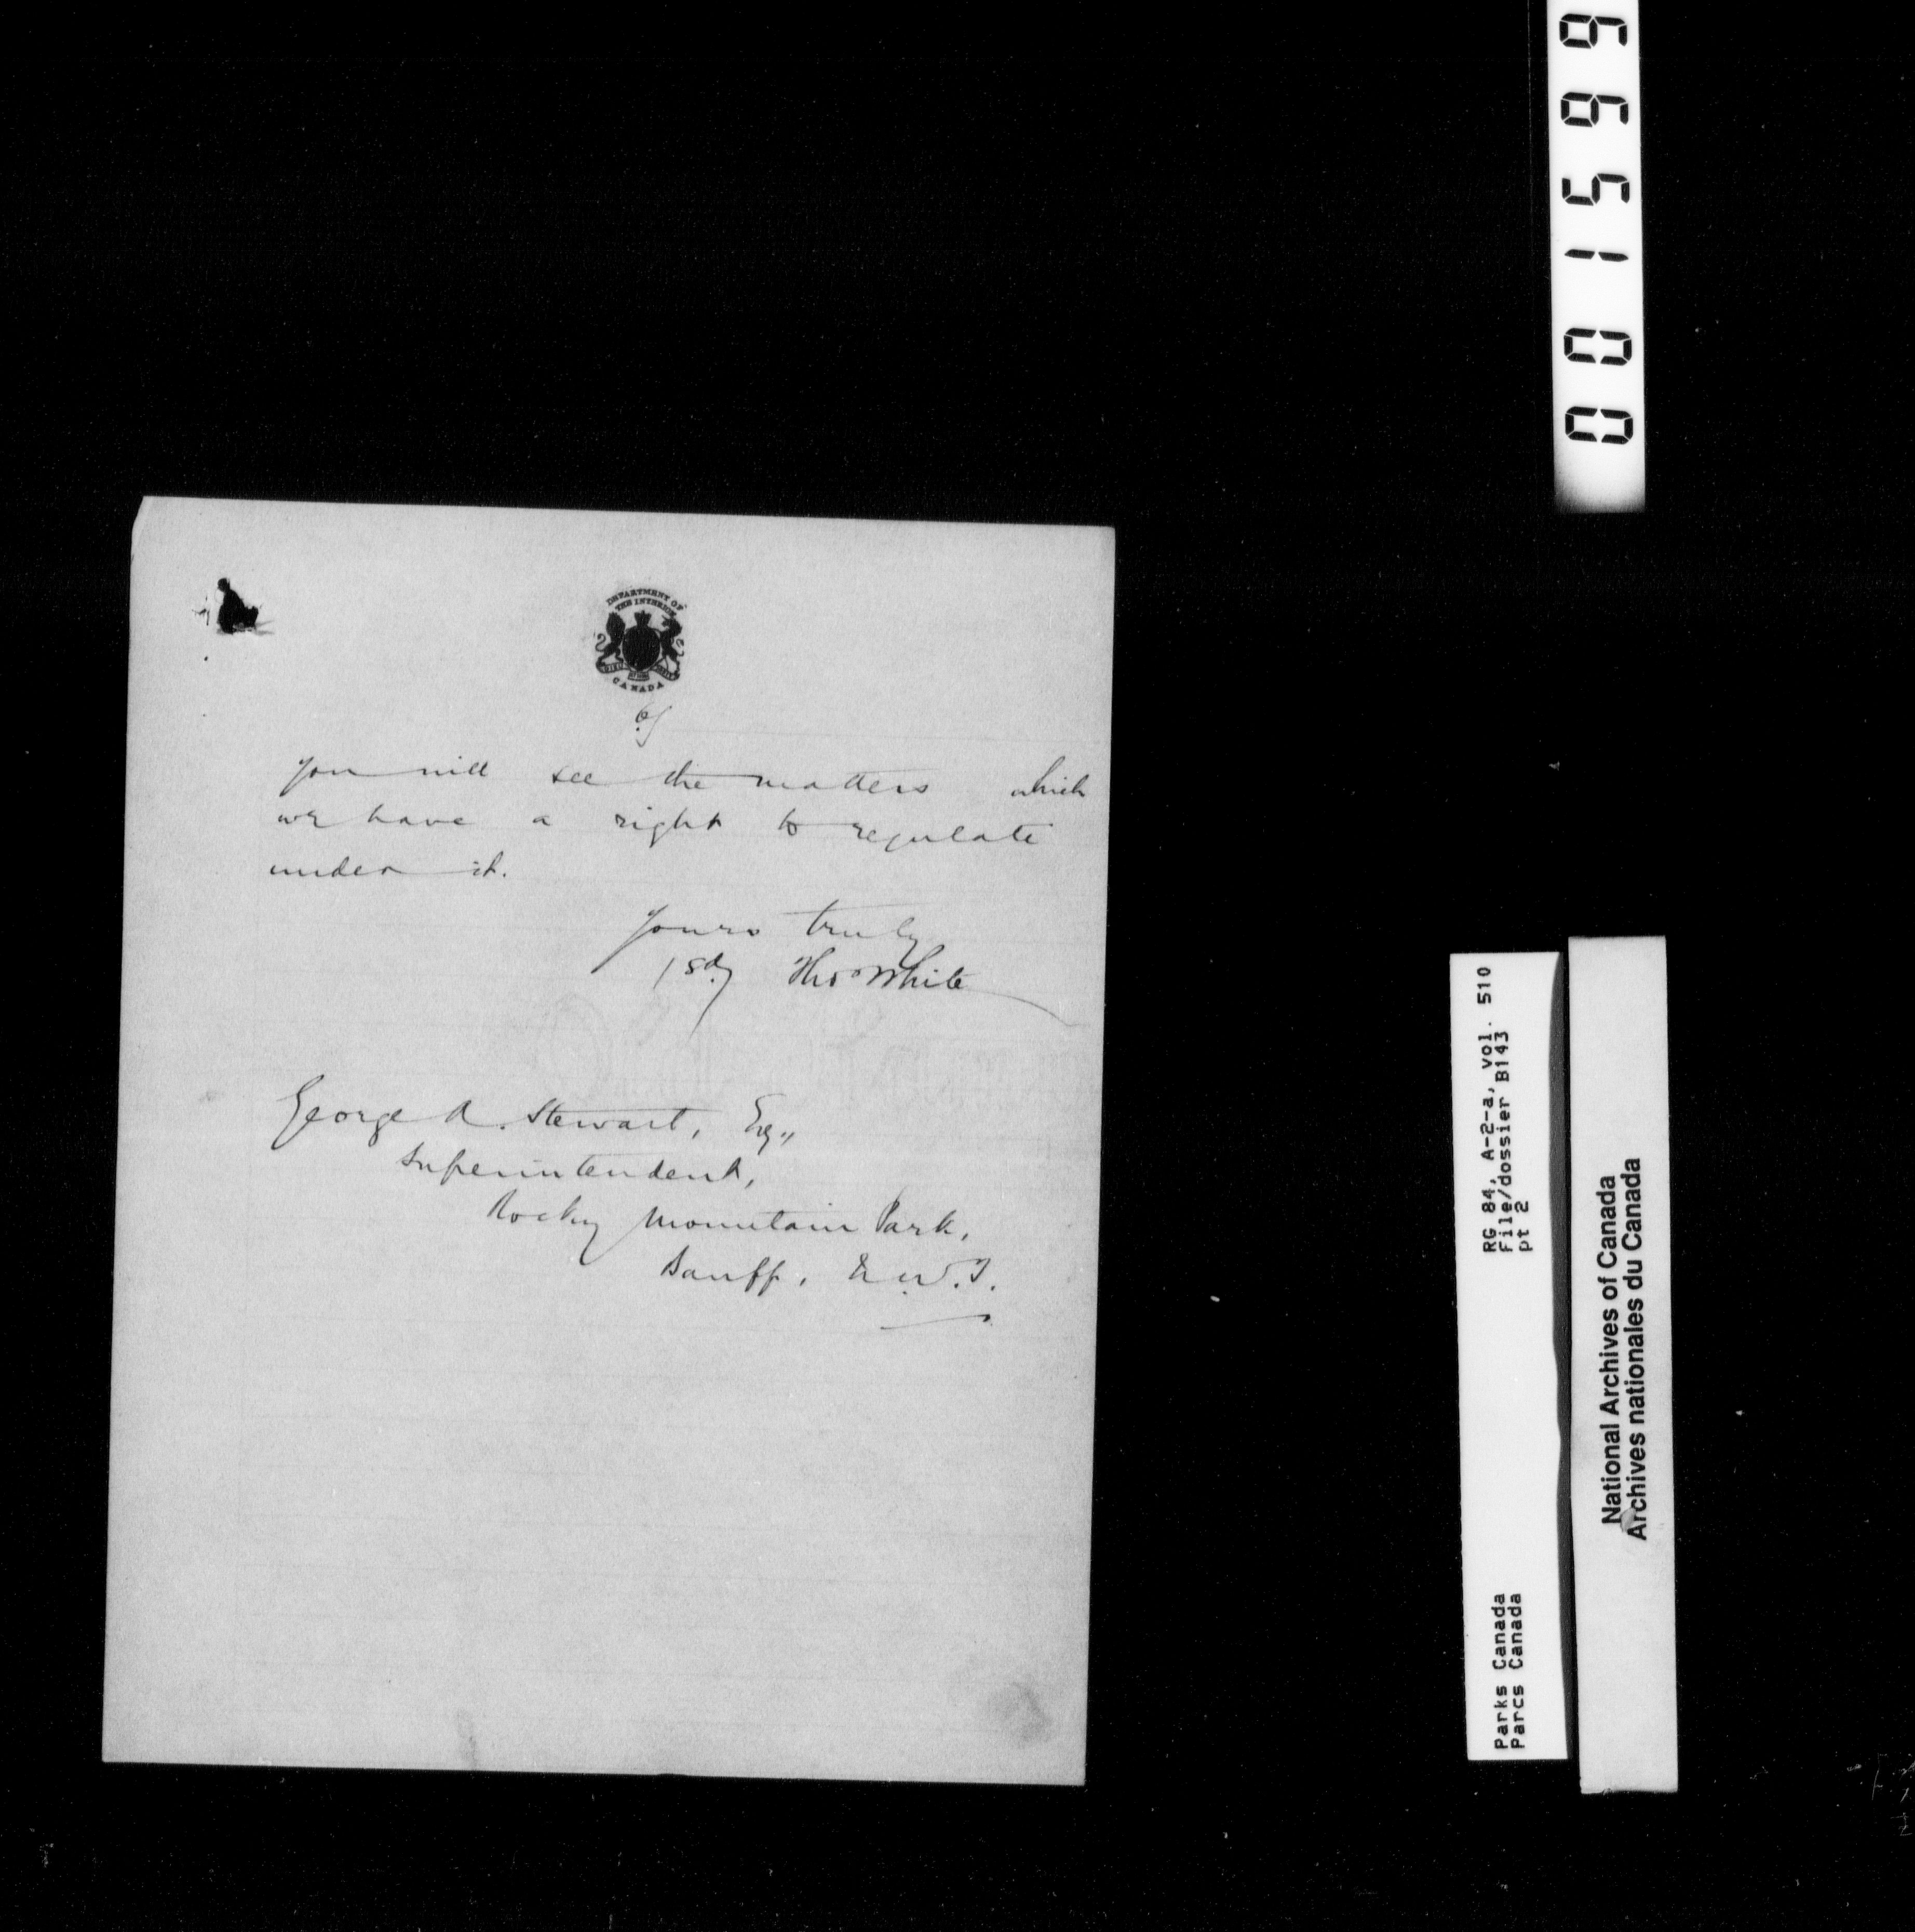 DEPARTMENT OF
THE INTERIOR
CANADA
6/
you will see the matters which
we have a right to regulate
under it.
Yours truly
/sd/ Thos White
George A. Stewart, Esq.,
Superintendent,
Rocky Mountain Park,
Banff, N.W.T.
001599
RG 84, A-2-a, vol. 510
File/dossier B143
pt 2
Parks Canada
Parcs Canada
National Archives of Canada
Archives nationales du Canada